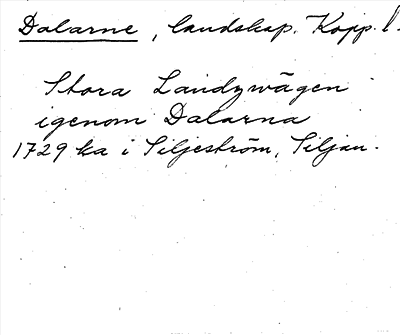 Dalarne, landskap. Kopp. l.
Stora Landzwägen
igenom Dalarna
1729 ka i Siljeström, Siljan.